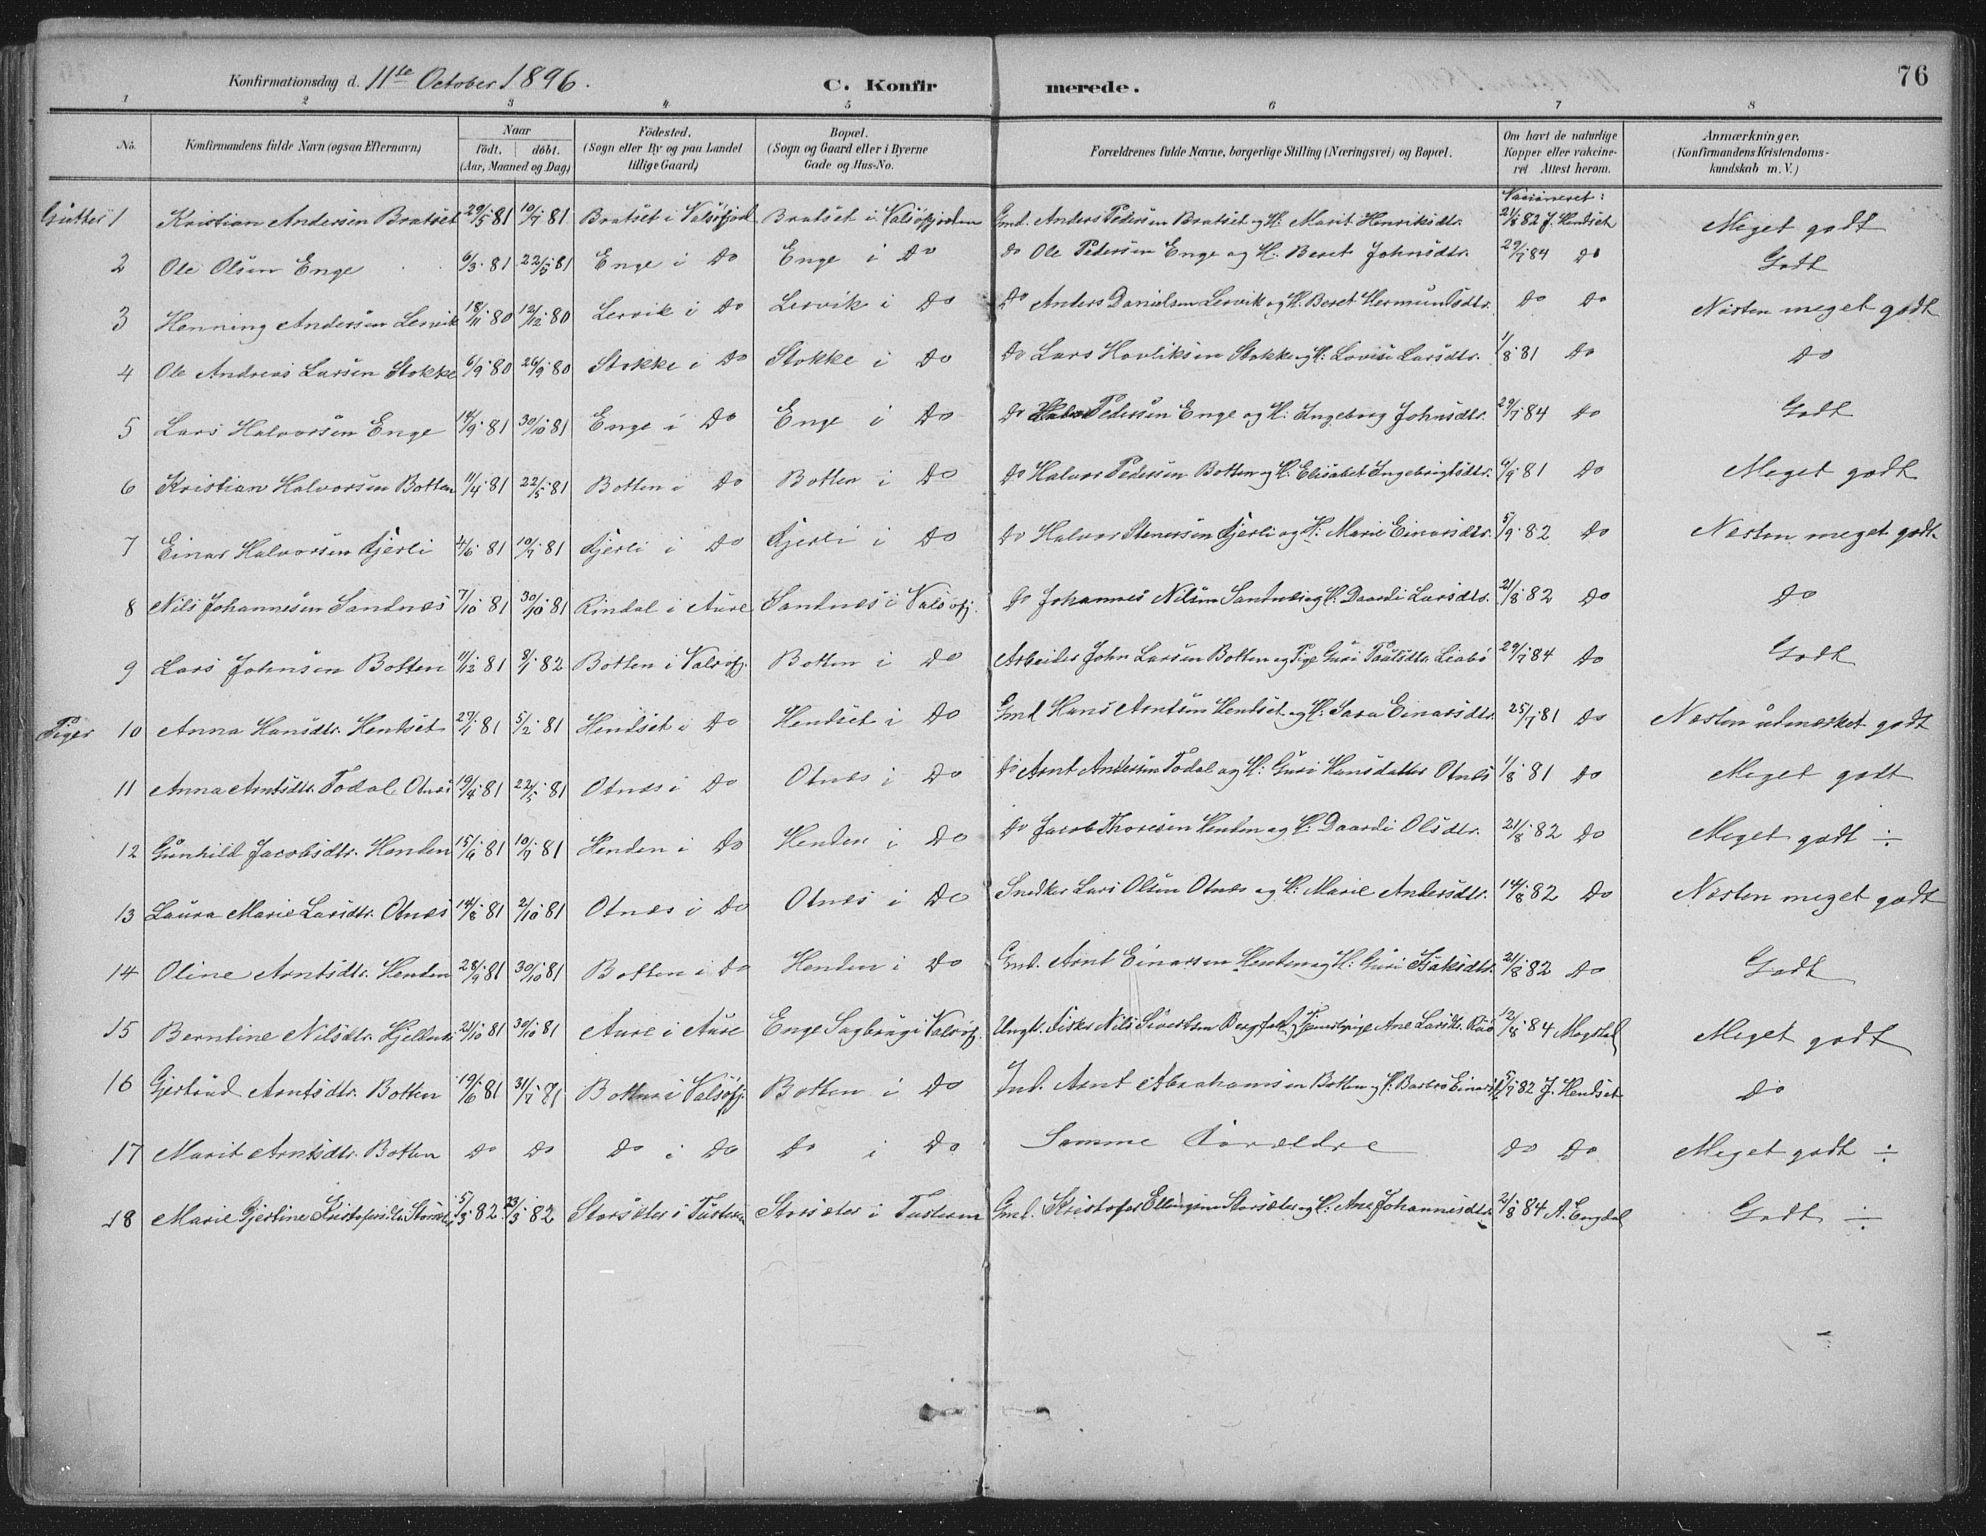 76
Konfirmationsdag d. 11te October 1896.
C. Konfirmerede.
1 2 3 4 5 6 7 8
No. Konfirmandens fulde Navn (ogsaa Efternavn) Naar födt. döbt. (Aar, Maaned og Dag) Födested. (Sogn eller By og paa Landet tillige Gaard) Bopæl. (Sogn og Gaard eller i Byerne Gade og Hus-No. Forældrenes fulde Navne, borgerlige Stilling (Næringsvei) og Bopæl. Om havt de naturlige Kopper eller vakcineret Attest herom. Anmærkninger. (Konfirmandens Kristendomskundskab m. V.)
Vacsineret:
Gutter 1 Kristian Andersen Bratset 29/5 81 10/7 81 Bratset i Valsöfjord Bratset i Valsöfjorden Gmd. Anders Pedersen Bratset og H. Marit Henriksdtr. 21/8 82 J. Hendset Meget godt
2 Ole Olsen Enge 6/3 81 22/5 81 Enge i Do Enge i Do Do Ole Pedersen Enge og H. Beret Johnsdtr. 29/7 84 Do Godt
3 Henning Andersen Lervik 18/11 80 12/12 80 Lervik i Do Lervik i Do Do Anders Danielsen Lervik og H. Beret Hermundsdtr. Do Do Næsten meget godt
4 Ole Andreas Larsen Stokke 6/9 80 26/9 80 Stokke i Do Stokke i Do Do Lars Stokke og H. Lovise Larsdtr. 1/8 81 Do Do
5 Lars Halvorsen Enge 14/9 81 30/10 81 Enge i Do Enge i Do Do Pedersen Enge og H. Ingeborg Johnsdtr. 29/7 84 Do Godt
6 Kristian Halvorsen Botten 11/4 81 22/5 81 Botten i Do Botten i Do Do Halvor Pedersen Botten og H. Elisabet Ingebrigtsdtr. 6/9 81 Do Meget godt
7 Einar Halvorsen Kjerli 4/6 81 10/7 81 Kjerli i Do Kjerli i Do Do Halvor Stenersen Kjerli og H. Marie Einarsdtr. 5/9 82 Do Næsten meget godt
8 Nils Johannesen Sandnes 7/10 81 30/10 81 Rindal i Aure Sandnes i Valsöfj. Do Johannes Nilsen Sandnes og H. Daardi Larsdtr. 21/8 82 Do Do
9 Lars Johnsen Botten 11/12 81 8/1 82 Botten i Valsöfj. Botten i Do Arbeider John Larsen Botten og Pige Guri Paulsdtr. Liabö 29/7 84 Do Godt
Piger 10 Anna Hansdtr. Hendset 27/1 81 5/2 81 Hendset i Do Hendset i Do Gmd. Hans Arntsen Hendset og H. Sara Einarsdtr. 25/7 81 Do Næsten udmerket godt
11 Anna Arntsdtr. Todal Otnes 19/4 81 22/5 81 Otnes i Do Otnes i Do Do Arnt Andersen Todal og H. Guri Hansdatter Otnes 1/8 81 Do Meget godt
12 Gunhild Jacobsdtr. Henden 10/7 81 Henden i Do Henden i Do Do Jacob Thoresen Henden og H. Daardi Olsdtr. 21/8 82 Do Meget godt ÷
13 Laura Marie Larsdtr. Otnes 14/8 81 2/10 81 Otnes i Do Otnes i Do Snedker Lars Olsen Otnes og H. Marie Andersdtr. 14/8 82 Do Næsten meget godt
14 Oline Arntsdtr. Henden 28/9 81 30/10 81 Botten i Do Henden i Do Gmd. Arnt Einarsen Henden og H. Guri Isaksdtr. 21/8 82 Do Godt
15 Berntine Nilsdtr. 21/10 81 30/10 81 Aure i Aure Enge Sagbrug i Valsöfj. Ungk. Fisker Nils Sivertsen Tjenestpige Ane Larsdtr. 84 Meget godt
16 Gjertrud Arntsdtr. Botten 19/6 81 31/7 81 Botten i Valsöfj. Botten i Do Ind. Arnt Abrahamsen Botten og H. Barbro Einarsdtr. 82 J. Hendset Do
17 Marit Arntsdtr. Botten Do Do Do i Do Do i Do Samme Forældre Do Do Meget godt ÷
18 Marie Gjertine Kristofersdtr. 5/3 82 23/3 82 Storsæter i Tusteren Storsæter i Tusteren Gmd. Kristofer Ellingsen Storsæter og H. Ane Johannesdtr. 21/8 84 A. Engdal Godt ÷